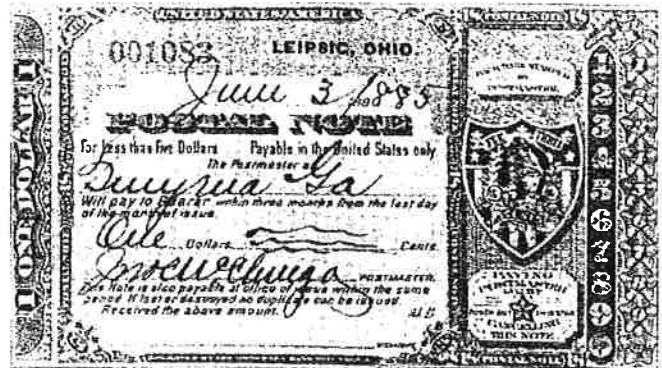 UNITED STATES AMERICA
POSTAL NOTE
001083
LEIPSIC, OHIO
June 3, 1885
POSTAL NOTE
For less than Five Dollars Payable in the United States only
The Postmaster at
Smyrna Ga
Will pay to Bearer within three months from the last day
of the month of issue.
One Dollars Cents
POSTMASTER.
This Note is also payable at office of issue within the same
period. If lost or destroyed no duplicate can be issued.
Received the above amount.
ONE DOLLAR
1
2
3
4
5
6
7
8
9
PAYING
POSTMASTER
CANCELLING
THIS NOTE
POSTAL NOTE